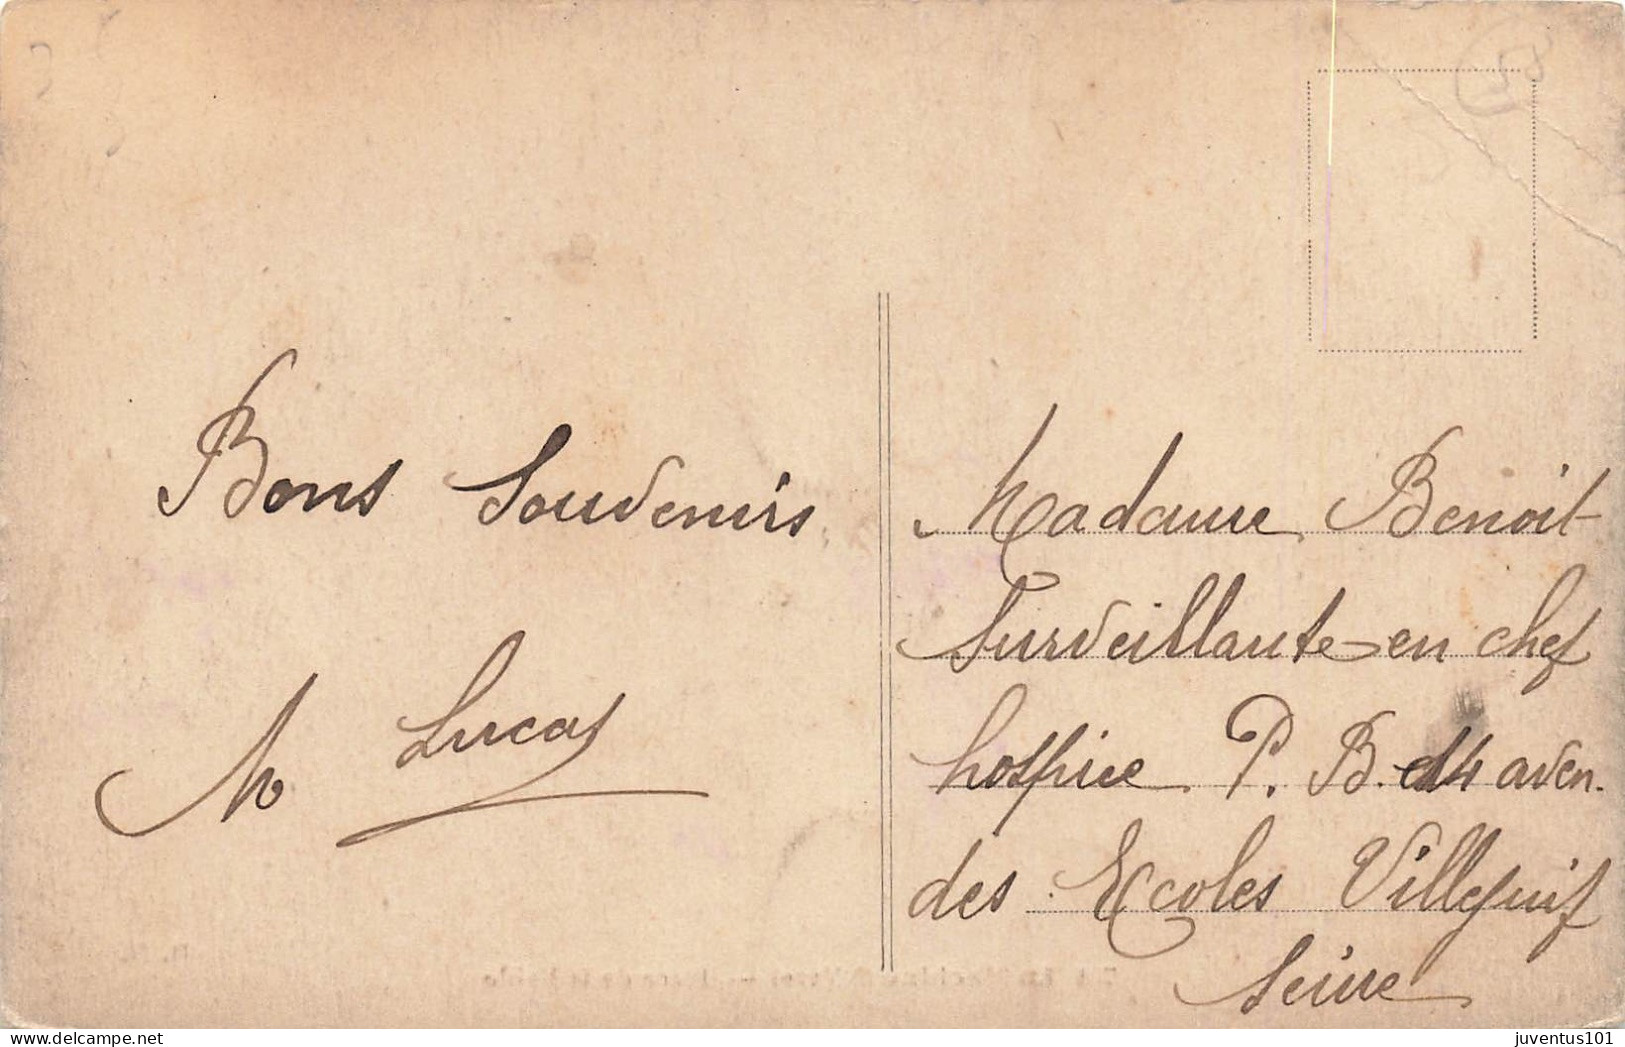 Bons Souvenirs
M Lucas
Madame Benoit
Surveillante en chef
hospice P. B. 14 aven.
des Ecoles Villejuif
Seine
www.delcampe.net
juventus101